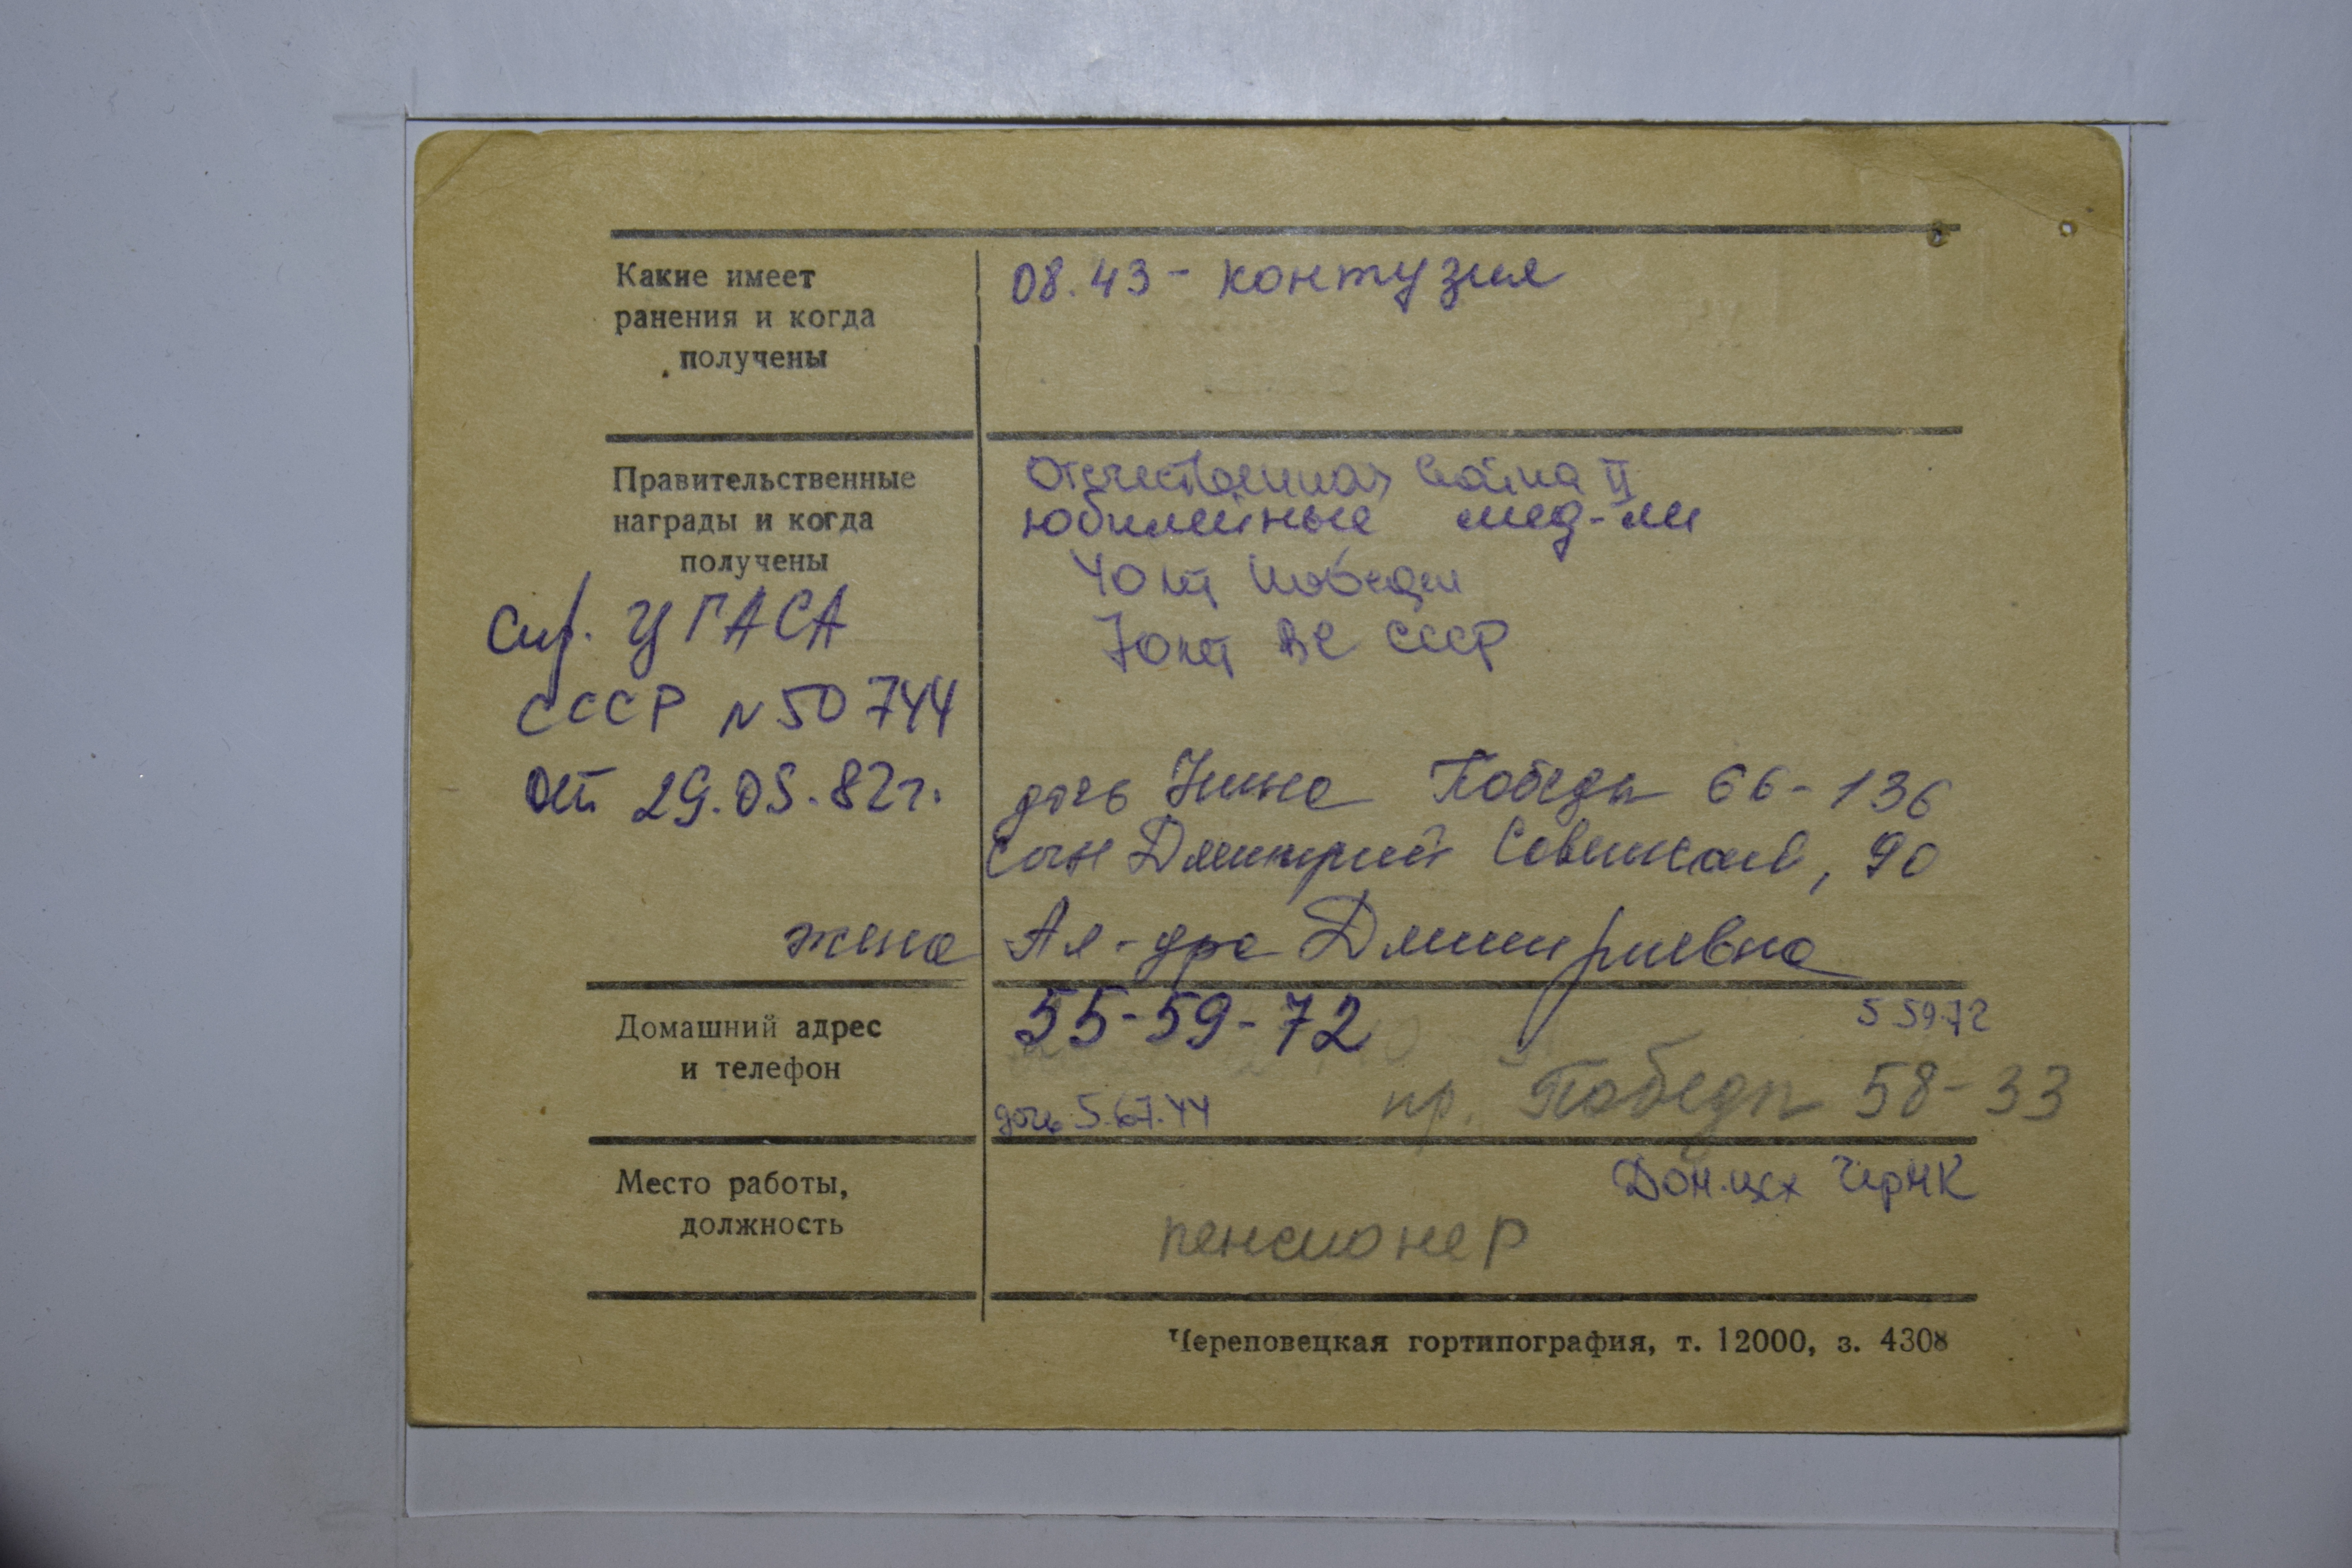 Какие имеет
ранения и когда
получены
08.43 - контузия
Правительственные
награды и когда
получены
Отечественная война II
юбилейные мед-ли
40 лет Победы
70 лет ВС СССР
Спр. ЦГАСА
СССР N 50744
от 29.05.82г.
дочь Нина Победы 66-136
сын Дмитрий Советский, 90
жена Ал-дра Дмитриевна
Домашний адрес
и телефон
55-59-72
5 59-72
пр. Победы 58-33
дочь 5.67.44
Место работы,
должность
Дом.цех ЧерМК
пенсионер
Череповецкая гортипография, т. 12000, з. 4308